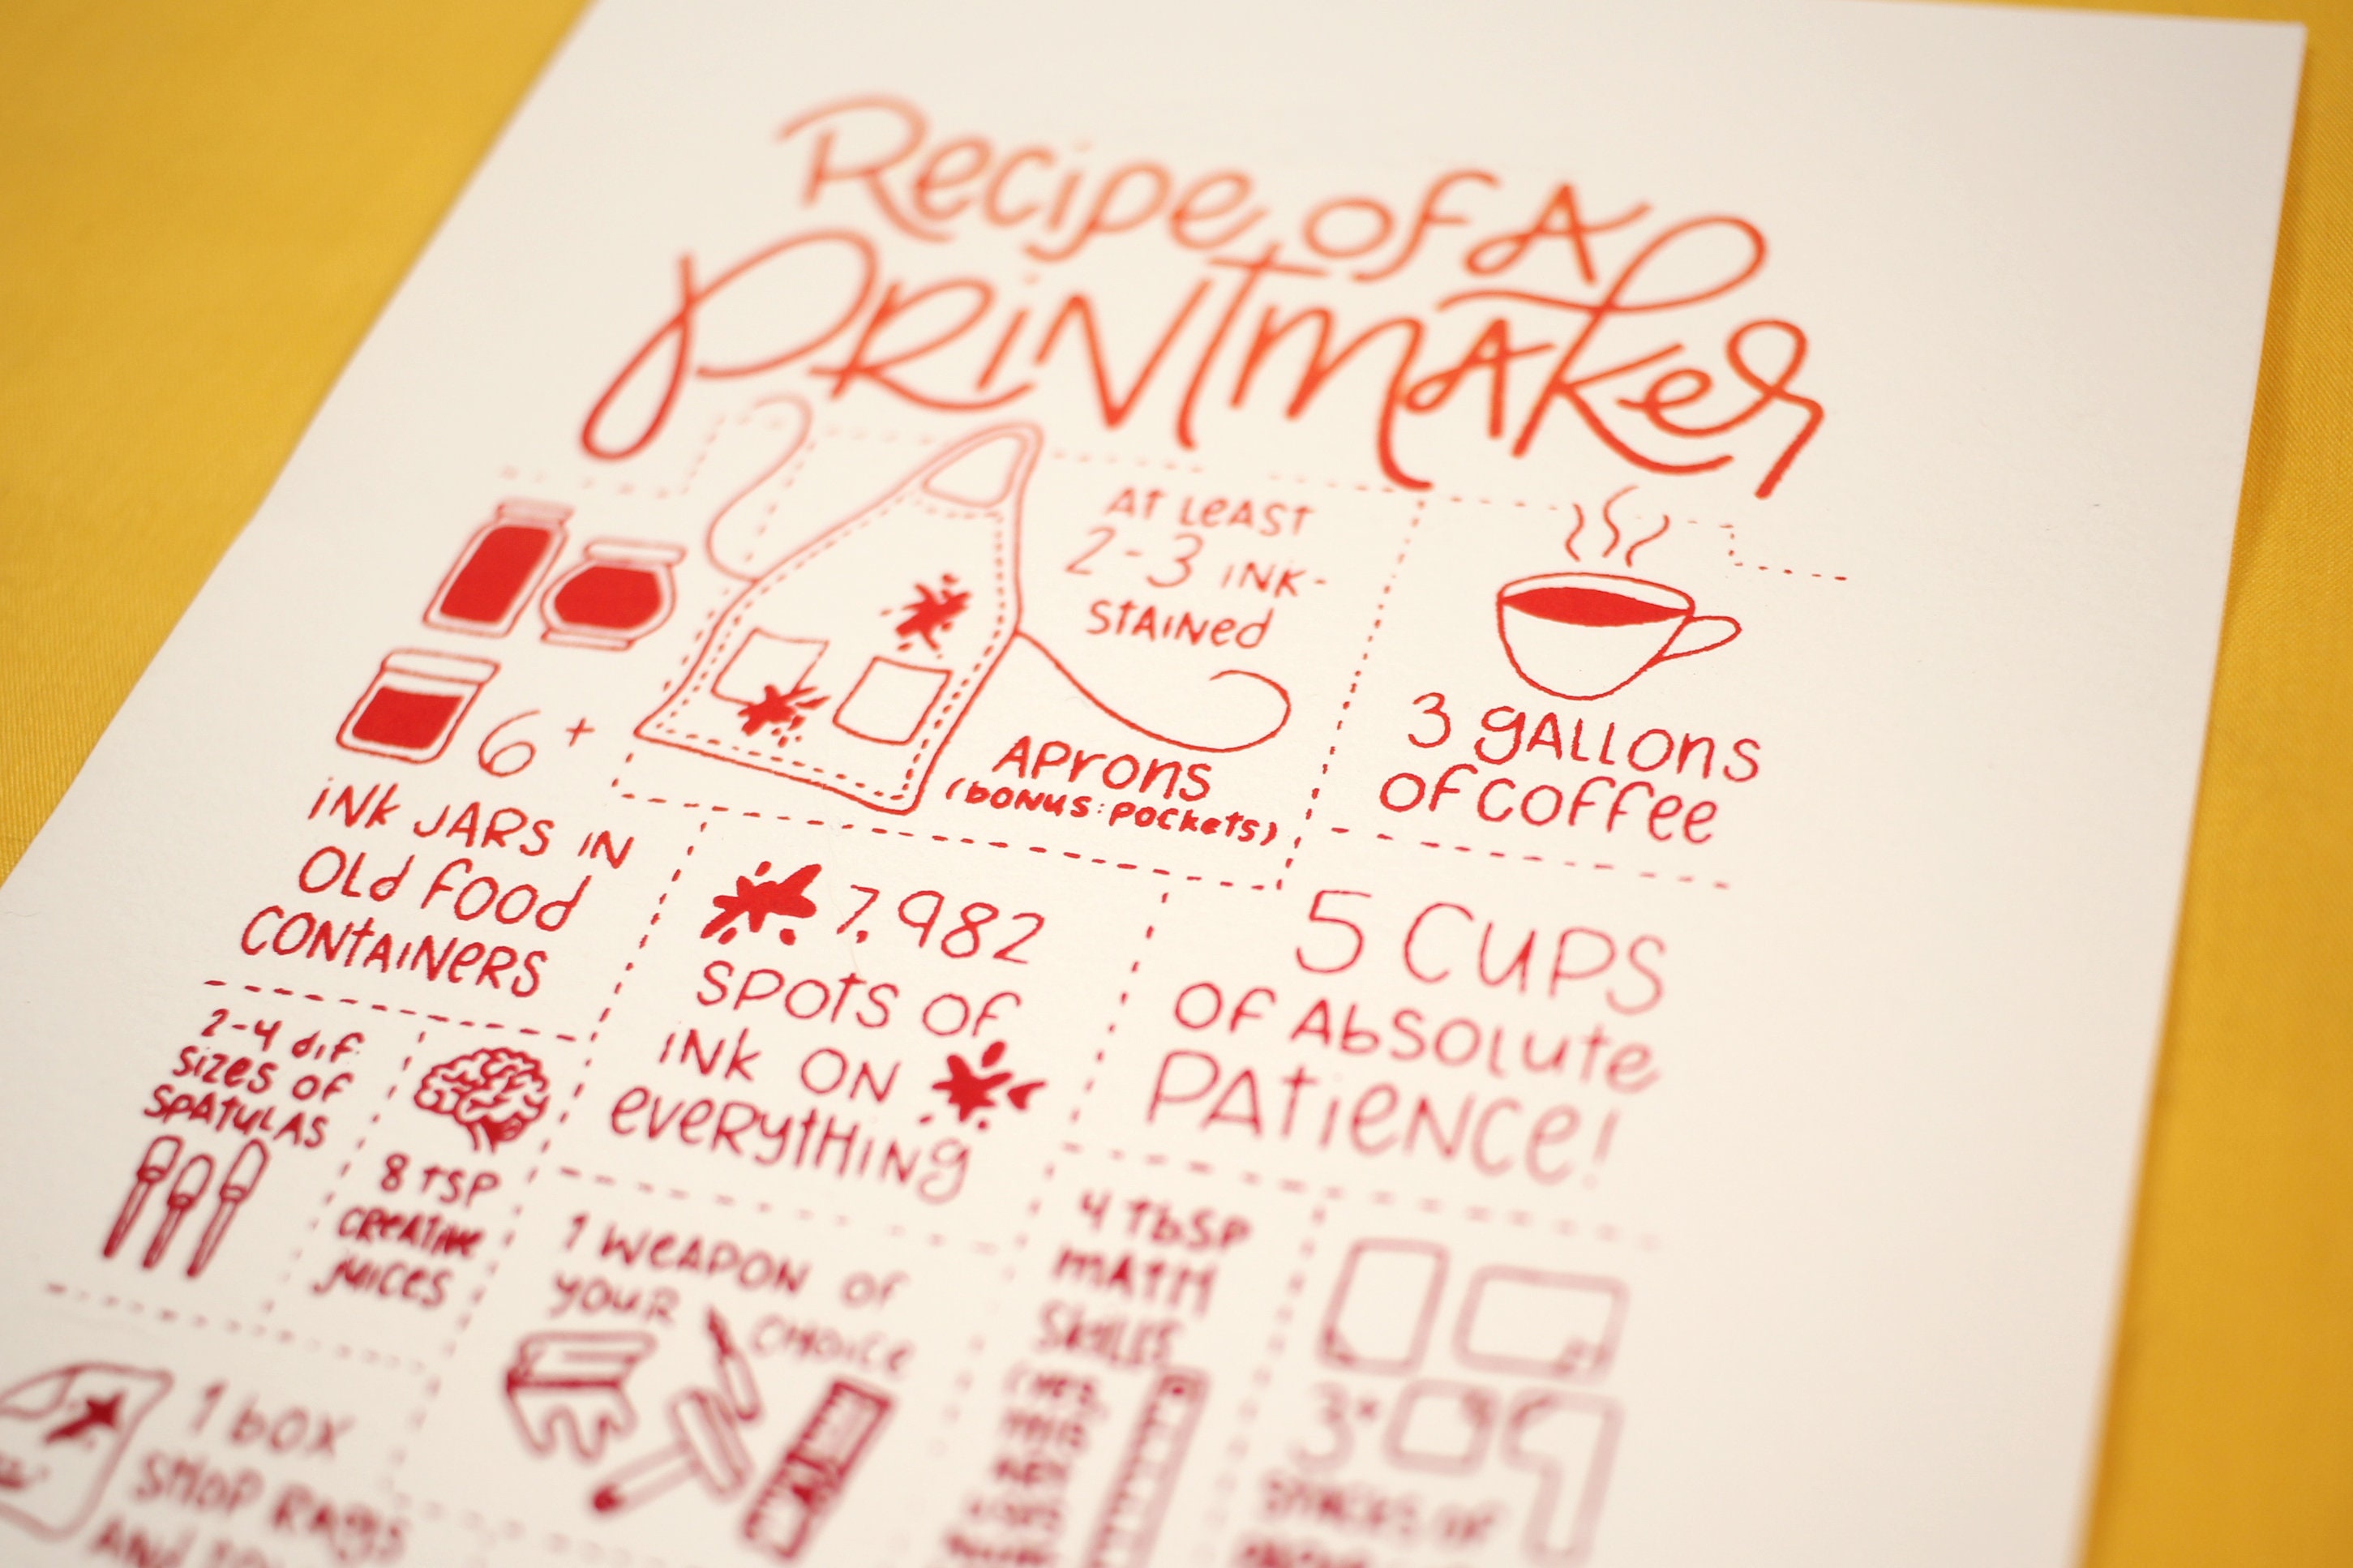 Recipe of A
PRINTMAKER
At LEAST
2-3 INK-
STAINed
Aprons
(bonus: pockets)
3 gALLons
of coffee
6+
iNk JARS IN
OLd food
CONtAiNeRS
7,982
SPOTS OF
iNk ON
eveRytHiNg
5 CuPS
OF AbSOLute
PAtieNce!
2-4 dif.
Sizes of
SPAtULAS
8 TSP
CReAtive
juices
1 WeAPON of
YOUR
CHOice
4 TbSP
mAtH
SkiLLS
(yes,
1 bOX
SHOP RAgS
ANd
3+
STACKS OF